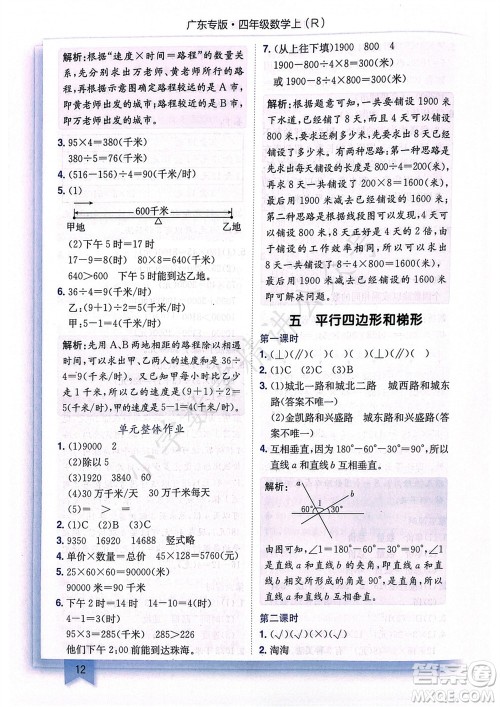 广东专版·四年级数学上(R)
解析:根据“速度×时间=路程”的数量关
系,先分别求出万老师、黄老师所行的路
程,再根据示意图确定路程较远的是A市,
即万老师出发的城市;路程较近的是B市,
即黄老师出发的城市。
3. 95×4=380(千米)
380÷5=76(千米/时)
4. (516-156)÷4=90(千米/时)
5. (1)
600千米
甲地 乙地
(2)下午5时=17时
17-9=8(时) 80×8=640(千米)
640>600 下午5时能到达乙地。
6. 36÷4=9(千米/时)
乙:(9+1)÷2=5(千米/时)
甲:5-1=4(千米/时)
解析:先用甲、乙两地相距的路程除以相遇
时间,求出甲、乙两人的速度和,即36÷
4=9(千米/时)。因为甲每小时比乙少行
1千米,所以乙的速度为(9+1)÷2=
5(千米/时),甲的速度为5-1=4(千米/时)。
单元整体作业
1. (1)9000 2
(2)除以5
(3)1920 3840 60
(4)30千米/时 20千米/时 90千米/天
(5)= >
2. (1)C (2)B (3)A (4)C
3. 9350 16920 14688 竖式略
4. 单价×数量=总价 45×128=5760(元)
5. 25×60×60=90000(米)
90000米=90千米
6. 下午2时=14时 下午4时=16时
4-1=3(时)
95×3=285(千米) 285>226
他们下午2:00前能到达珠海。
12
7. (从上往下填)1900 800 4
(或1900)800÷4×8=1600(米)
800×2=1600(米)
解析:根据题意可知,一共要铺设1900米
下水道,已经铺设了8天,4天铺设了
800米。因为每天铺设的米数相同,所以要
求出8天已经铺设了多少米。有两种思路
可以求出来:第一种思路是先求出每天
铺设的长度是800÷4=200(米),再求出
8天铺设的长度是200×8=1600(米)。
第二种思路是根据线段图可以发现,
8天正好是4天的2倍,
由于铺设的工作效率相同,所以
用800×2=1600(米),也可以求出
最后结果。求出已经铺设了1600米即
可解决问题。
五 平行四边形和梯形
第一课时
1. (⊥)(∥)( )(∥)(⊥)( )
2. (1)C (2)C
3. (1)城北一路和城北二路 城西路和城东
路(答案不唯一)
(2)金凯路和兴盛路 城东路和兴盛路
(答案不唯一)
4. 互相垂直,180°-60°-30°=90°,所以
直线a和直线b互相垂直。
解析:
a
b
1
60°
30°
由图可以知道,∠1=180°-60°-30°=90°,∠1
是直线a和直线b的夹角,夹角是90°,
则直线a和直线b互相垂直。
第二课时
1. (√)(√)( )(√)
2. 淘淘
答案圈
MXQE.COM